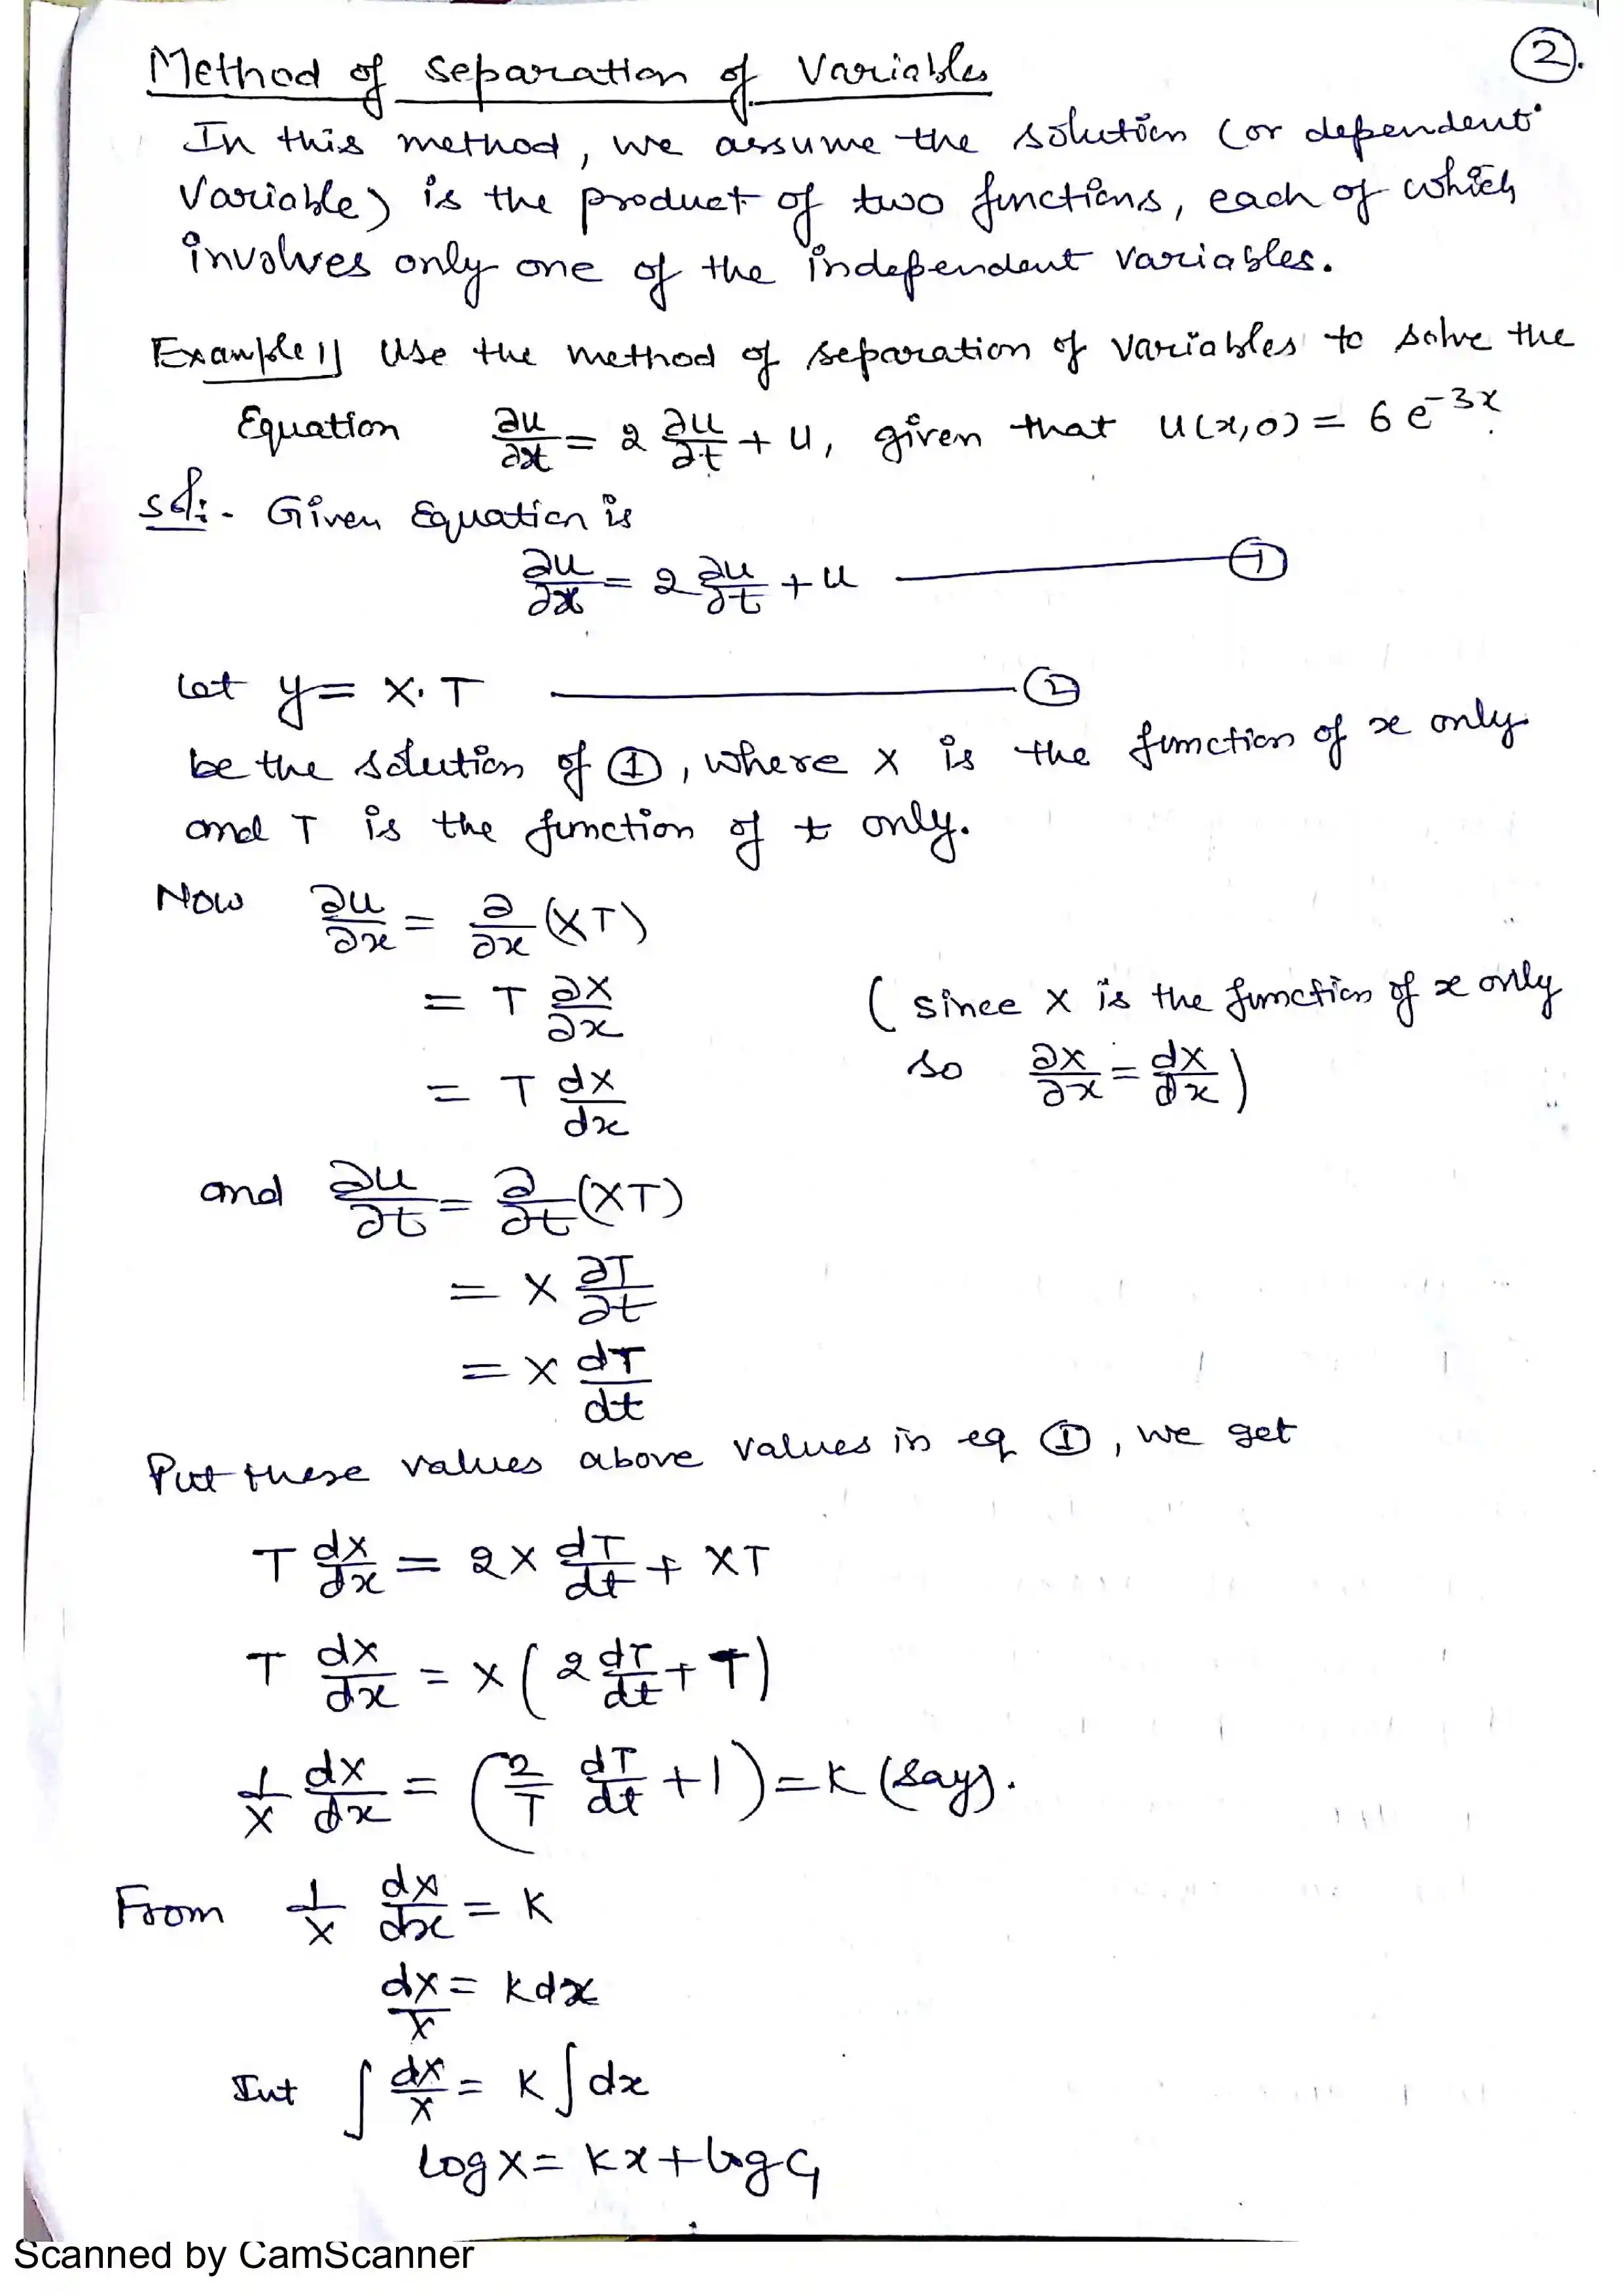 ②.
Method of Separation of Variables
In this method, we assume the solution (or dependent
Variable) is the product of two functions, each of which
involves only one of the independent variables.
Example 1] Use the method of separation of variables to solve the
Equation ∂u/∂x = 2 ∂u/∂t + u, given that u(x,0) = 6 e^-3x.
Sol:- Given Equation is
∂u/∂x = 2 ∂u/∂t + u ——— ①
Let y = X.T ——— ②
be the solution of ①, where X is the function of x only
and T is the function of t only.
Now ∂u/∂x = ∂/∂x (XT)
= T ∂X/∂x (since X is the function of x only
= T dX/dx so ∂X/∂x = dX/dx)
and ∂u/∂t = ∂/∂t (XT)
= X ∂T/∂t
= X dT/dt
Put these values above values in eq ①, we get
T dX/dx = 2X dT/dt + XT
T dX/dx = X (2 dT/dt + T)
1/X dX/dx = (2/T dT/dt + 1) = K (say).
From 1/X dX/dx = K
dX/X = K dx
Int ∫ dX/X = K ∫ dx
log X = Kx + log C₁
Scanned by CamScanner